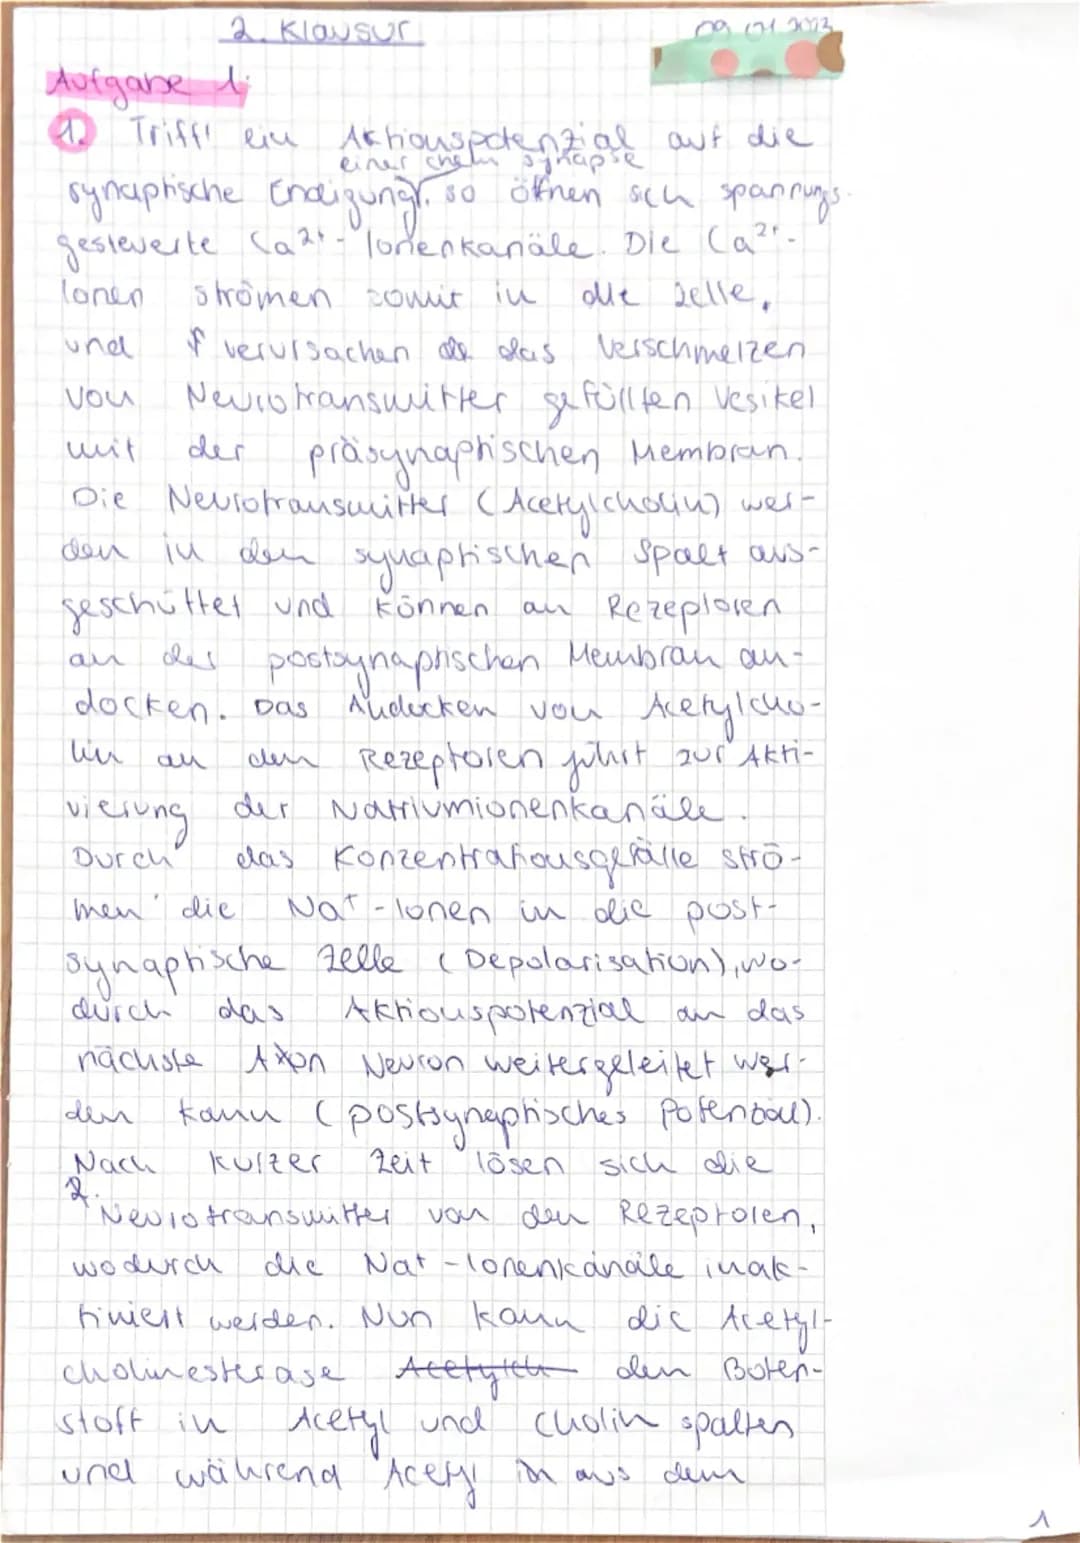 2. Klausur
09.01.2023
Aufgabe 1:
1. Trifft ein Aktionspotenzial auf die
einer chem synapse
synaptische Endigung, so öffnen sich spannungs-
gesteuerte Ca²⁺-Ionenkanäle. Die Ca²⁺-
Ionen strömen somit in die Zelle,
und verursachen das Verschmelzen
von Neurotransmitter gefüllten Vesikel
mit der präsynaptischen Membran.
Die Neurotransmitter (Acetylcholin) wer-
den in den synaptischen Spalt aus-
geschüttet und können an Rezeptoren
an der postsynaptischen Membran an-
docken. Das Andocken von Acetylcho-
lin an den Rezeptoren führt zur Akti-
vierung der Natriumionenkanäle.
Durch das Konzentrationsgefälle strö-
men die Na⁺-Ionen in die post-
synaptische Zelle (Depolarisation), wo-
durch das Aktionspotenzial an das
nächste Axon Neuron weitergeleitet wer-
den kann (postsynaptisches Potenzial).
Nach kurzer Zeit lösen sich die
2. Neurotransmitter von den Rezeptoren,
wodurch die Na⁺-Ionenkanäle inak-
tiviert werden. Nun kann die Acetyl-
cholinesterase Acetylch den Boten-
stoff in Acetyl und Cholin spalten
und während Acetyl in aus dem
1